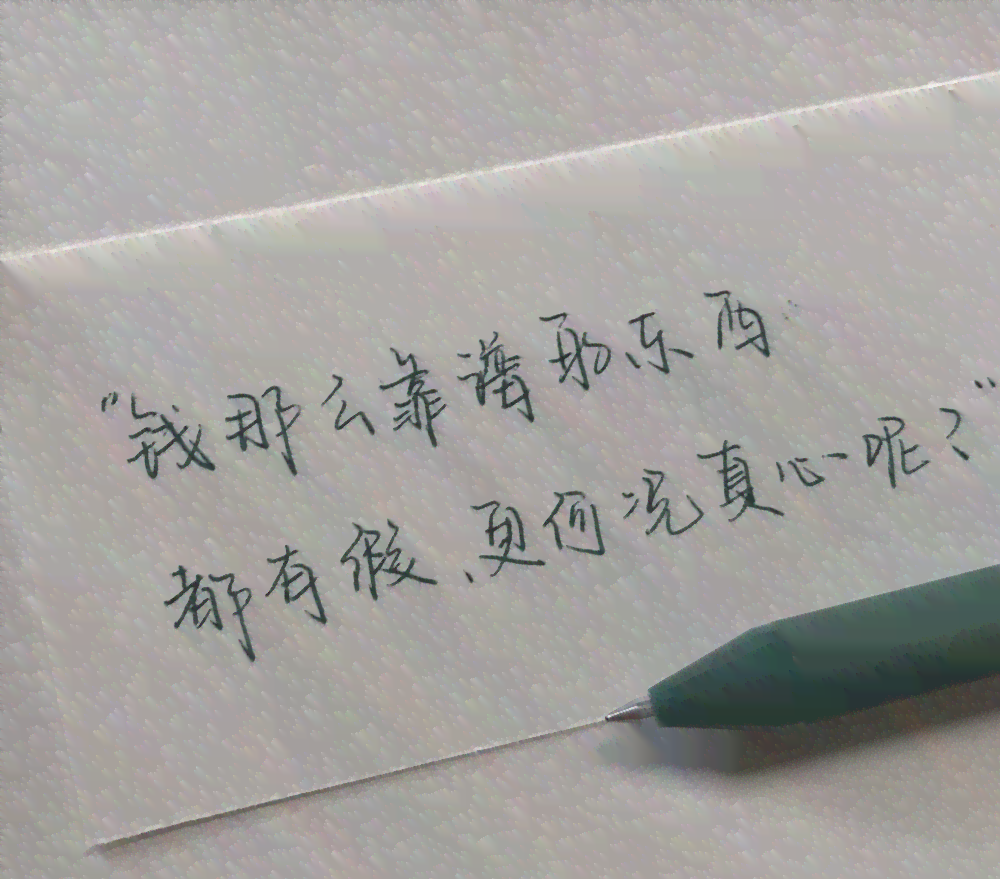 "钱那么靠谱的东西
都有假，更何况真心呢？"